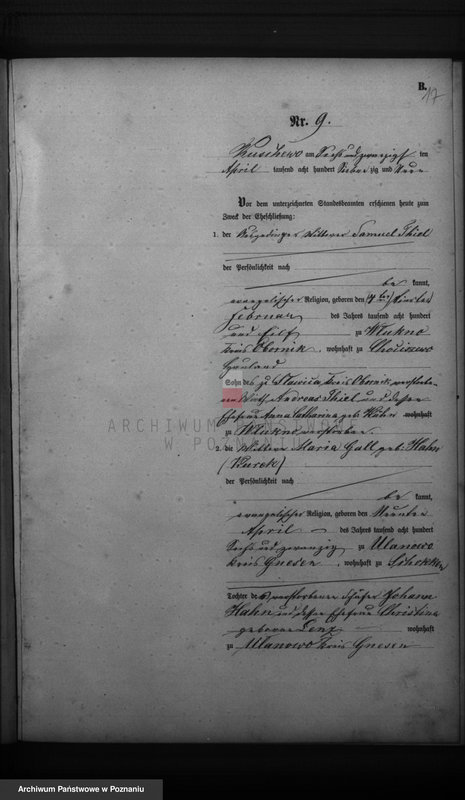 B.
17
Nr. 9.
am Sechs und zwanzig ten
April tausend acht hundert Sieben zig und Neun
Vor dem unterzeichneten Standesbeamten erschienen heute zum
Zweck der Eheschließung:
1. der Wittwer Samuel Thiel
der Persönlichkeit nach
be kannt,
evangelischer Religion, geboren den
Februar des Jahres tausend acht hundert
und Eilf zu
Kreis Obornik, wohnhaft zu
Hauland
Sohn des zu Kreis Obornik verstorbe-
nen Wirth Andreas Thiel und dessen
Ehefrau Anna Catharina geb. Hahn wohnhaft
zu verstorben
2. die Wittwe Maria Gall geb. Hahn
der Persönlichkeit nach
be kannt,
evangelischer Religion, geboren den Neunten
April des Jahres tausend acht hundert
Sechs und zwanzig zu Ulanowo
Kreis Gnesen, wohnhaft zu Schokken
Tochter des verstorbenen Schäfer Johann
Hahn und dessen Ehefrau Christina
geborne Lenz wohnhaft
zu Ulanowo Kreis Gnesen
ARCHIWUM PAŃSTWOWE
W POZNANIU
Archiwum Państwowe w Poznaniu